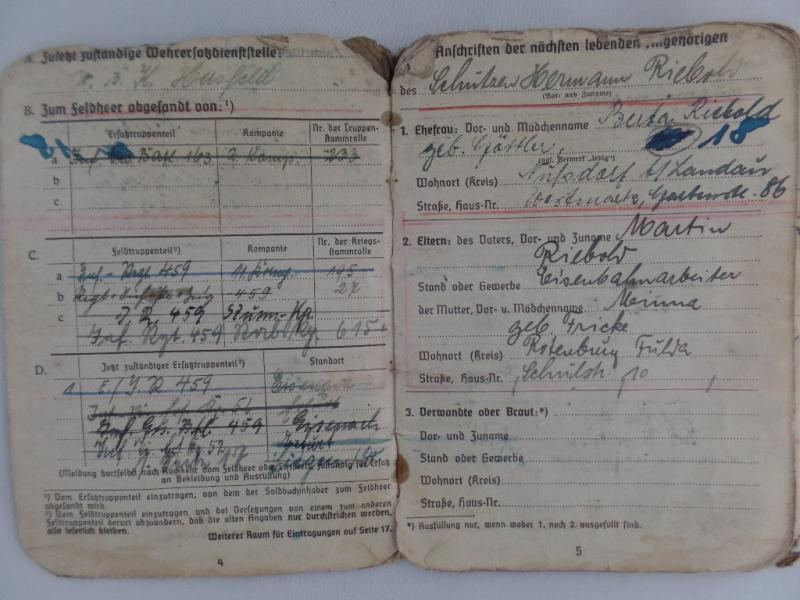 A. Zuletzt zuständige Wehrersatzdienststelle:
W. B. K. Hersfeld
B. Zum Feldheer abgesandt von:¹)
Ersatztruppenteil Kompanie Nr. der Truppenstammrolle
a Inf. Ers. Batl. 163 2. Komp. 233
b
c
C. Feldtruppenteil²) Kompanie Nr. der Kriegsstammrolle
a Inf.-Rgt. 459 11. Komp. 195
b 459 27
c J. R. 459 Stamm-Kp.
Inf. Rgt. 459 615
D. Jetzt zuständiger Ersatztruppenteil²) Standort
E./J. R 459 Eisenach
Inf. 459 Eisenach
52 Erfurt
Siegen
(Meldung dortselbst nach Rückkehr vom Feldheer oder Lazarett, zuständig für Ersatz an Bekleidung und Ausrüstung)
¹) Vom Ersatztruppenteil einzutragen, von dem der Soldbuchinhaber zum Feldheer
abgesandt wird.
²) Vom Feldtruppenteil einzutragen und bei Versetzungen von einem zum anderen
Feldtruppenteil derart abzuändern, daß die alten Angaben nur durchstrichen werden,
also leserlich bleiben.
Weiterer Raum für Eintragungen auf Seite 17.
4
Anschriften der nächsten lebenden Angehörigen
des Schützen Hermann Riebold
(Vor- und Zuname)
1. Ehefrau: Vor- und Mädchenname Berta Riebold
geb. Göttler 18
(ggf. Vermerk „ledig")
Wohnort (Kreis) Nußdorf b/Landau
Straße, Haus-Nr. Westmark, Gartenstr. 86
2. Eltern: des Vaters, Vor- und Zuname Martin
Riebold
Stand oder Gewerbe Eisenbahnarbeiter
der Mutter, Vor- u. Mädchenname Minna
geb. Fricke
Wohnort (Kreis) Rotenburg Fulda
Straße, Haus-Nr. Schulstr. 10
3. Verwandte oder Braut:*)
Vor- und Zuname
Stand oder Gewerbe
Wohnort (Kreis)
Straße, Haus-Nr.
*) Ausfüllung nur, wenn weder 1. noch 2. ausgefüllt sind.
5